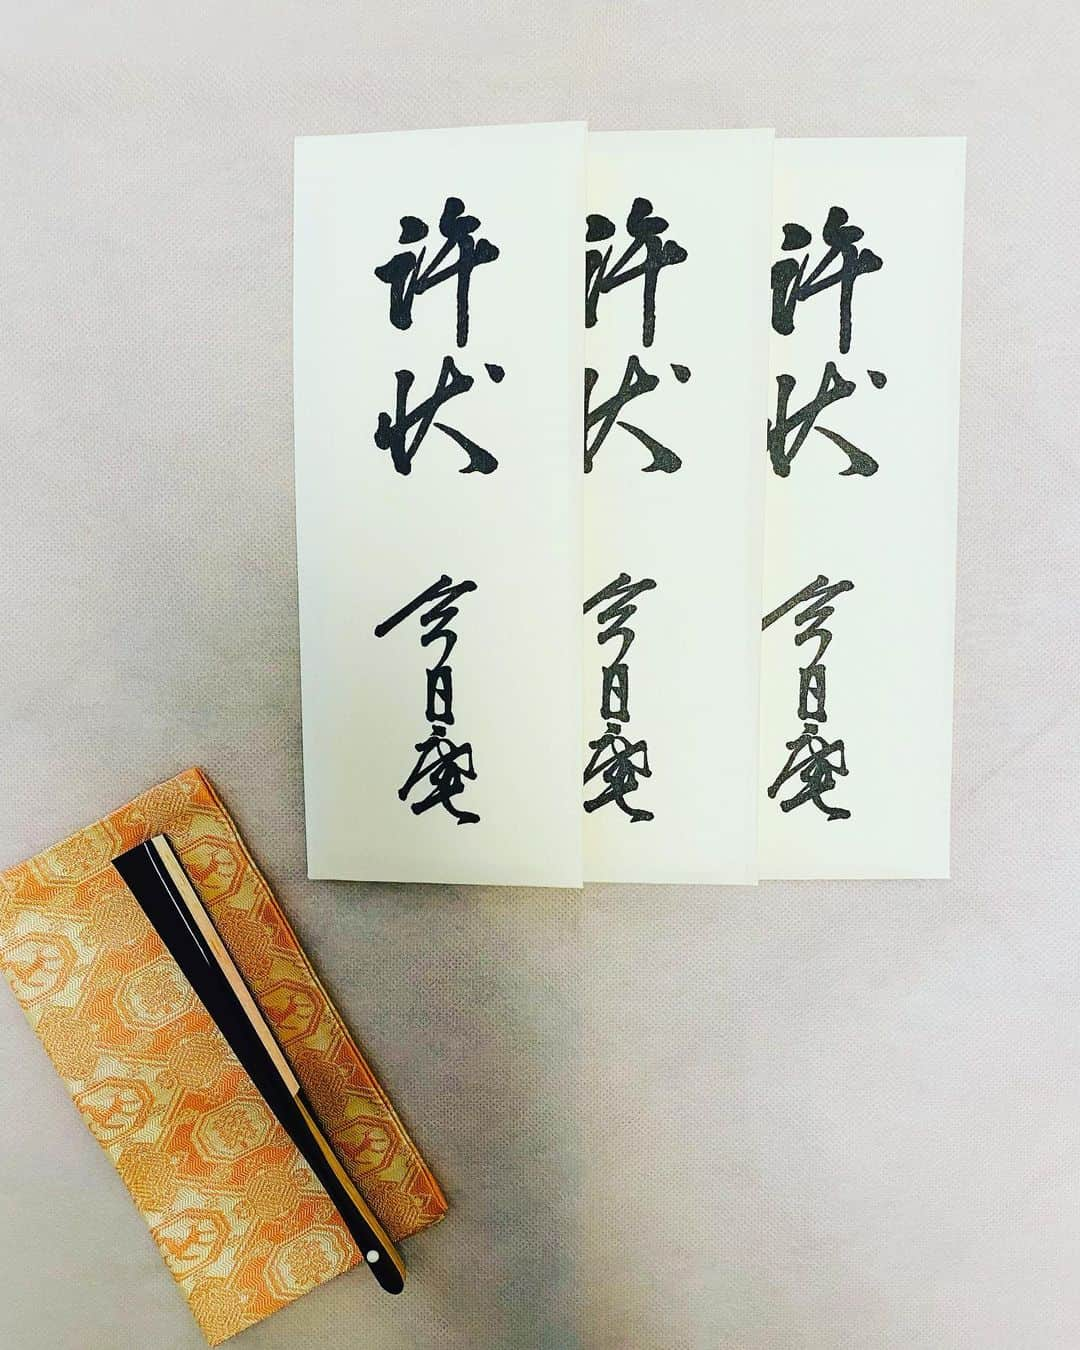 許状
今日庵
許状
今日庵
許状
今日庵